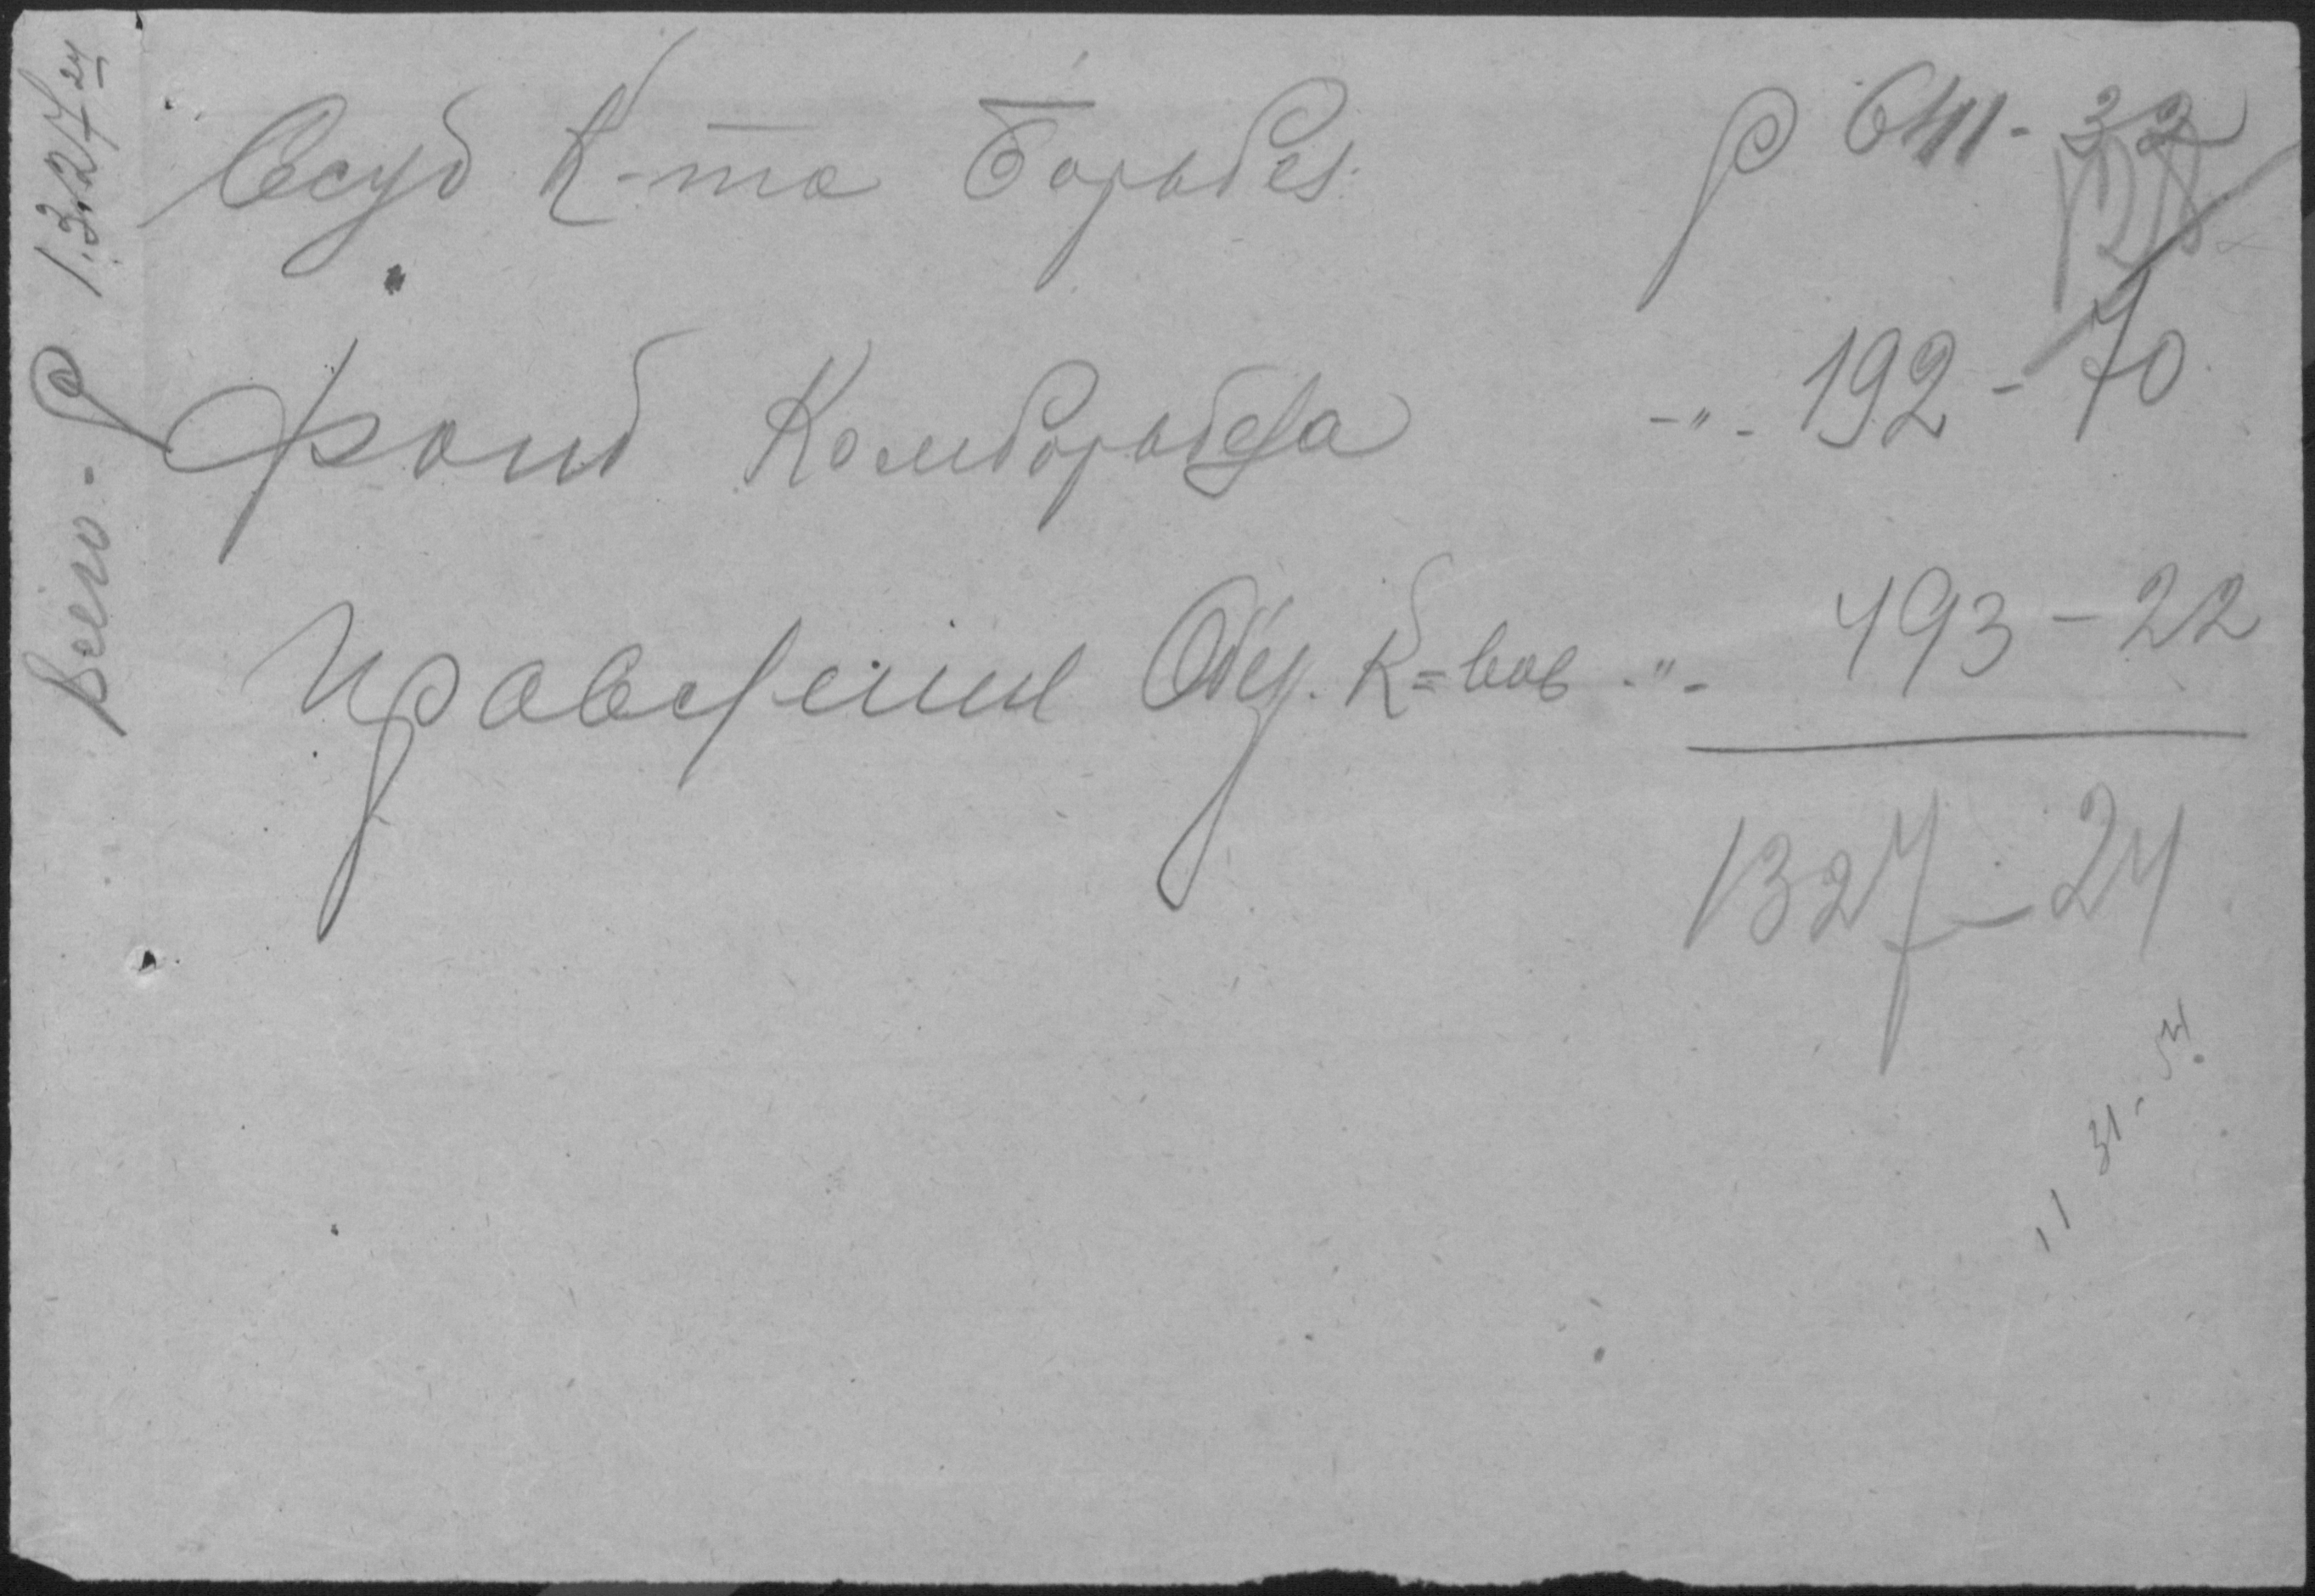 Всего - Р 1.327 24
Ссуд К-та Борьбы Р 641 - 32
Фонд Комборьбеза -"- 192 - 70
Проведения Общ. К=вов -"- 493 - 22
1327 - 24